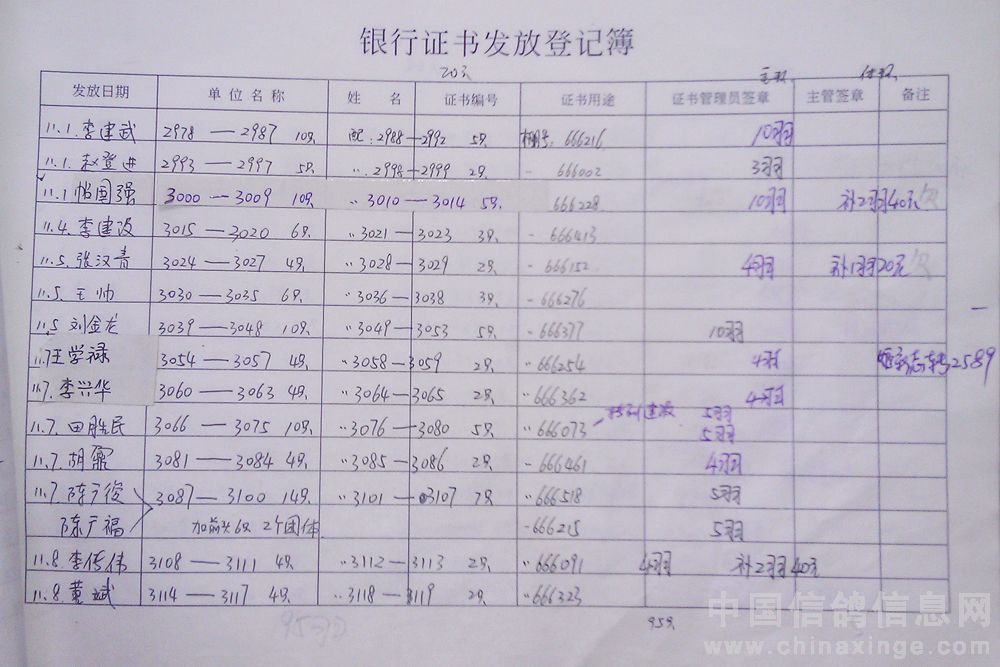 银行证书发放登记簿
20只
发放日期 单位名称 姓 名 证书编号 证书用途 证书管理员签章 主管签章 备注
11.1.李建武 2978—2987 10只 配:2988—2992 5只 棚号:666216 10羽
11.1.赵登进 2993—2997 5只 ..2998—2999 2只 666002 3羽
11.1 国强 3000—3009 10只 ..3010—3014 5只 666228 10羽 补2羽40元
11.4.李建设 3015—3020 6只 ..3021—3023 3只 -666413
11.5.张汉青 3024—3027 4只 ..3028—3029 2只 -666152 4羽 补1羽20元
11.5.王帅 3030—3035 6只 ..3036—3038 3只 -666276
11.5 刘金龙 3039—3048 10只 ..3049—3053 5只 -666377 10羽
11.7.汪学禄 3054—3057 4只 ..3058—3059 2只 ..666254 4羽 2589
11.7.李兴华 3060—3063 4只 ..3064—3065 2只 ..666362 4羽
11.7.田胜民 3066—3075 10只 ..3076—3080 5只 ..666073 5羽
5羽
11.7.胡 3081—3084 4只 ..3085—3086 2只 -666461 4羽
11.7.陈广俊 3087—3100 14只 ..3101—03107 7只 ..666518 5羽
陈广福 加前头6只 2个团体 -666215 5羽
11.8.李传伟 3108—3111 4只 ..3112—3113 2只 ..666091 4羽 补2羽40元
11.8.董斌 3114—3117 4只 ..3118—3119 2只 ..666323
95羽 95只
中国信鸽信息网
www.chinaxinge.com